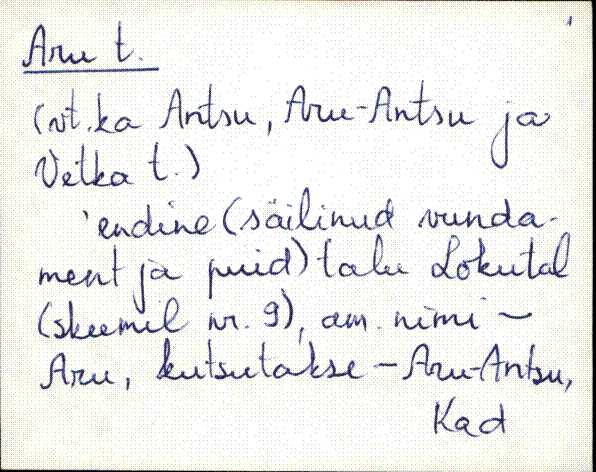 1
Aru t.
(vt. ka Antsu, Aru-Antsu ja
Vetka t.)
'endine (säilinud vunda-
ment ja puid) talu Lokutal
(skeemil nr. 9), am. nimi -
Aru, kutsutakse - Aru-Antsu,
Kad